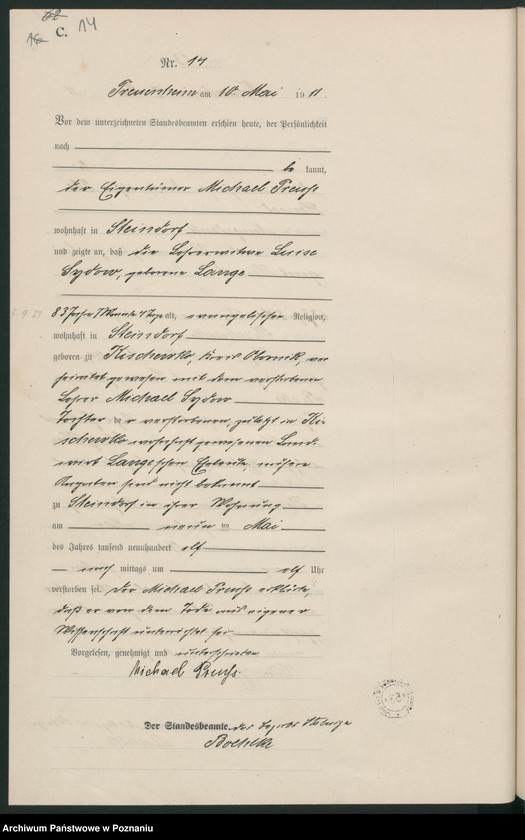 C. 14
Nr. 14
Treuenheim am 10. Mai 1911.
Vor dem unterzeichneten Standesbeamten erschien heute, der Persönlichkeit
nach
be kannt,
der Eigentümer Michael Preuß
wohnhaft in Steindorf
und zeigte an, daß die Lehrerwitwe Luise
Sydow, geborene Lange
83 Jahre 7 Monate 4 Tage alt, evangelischer Religion,
wohnhaft in Steindorf
geboren zu Kischewko, Kreis Obornik, ver
heiratet gewesen mit dem verstorbenen
Lehrer Michael Sydow
Tochter der verstorbenen, zuletzt in Ki-
schewko wohnhaft gewesenen Land-
wirt Langeschen Eheleute, nähere
Angaben sind nicht bekannt
zu Steindorf in ihrer Wohnung
am neun ten Mai
des Jahres tausend neunhundert elf
nach mittags um elf Uhr
verstorben sei. Der Michael Preuß erklärte,
daß er von dem Tode aus eigener
Wissenschaft unterrichtet sei
Vorgelesen, genehmigt und unterschrieben
Michael Preuß.
Der Standesbeamte.
Archiwum Państwowe w Poznaniu